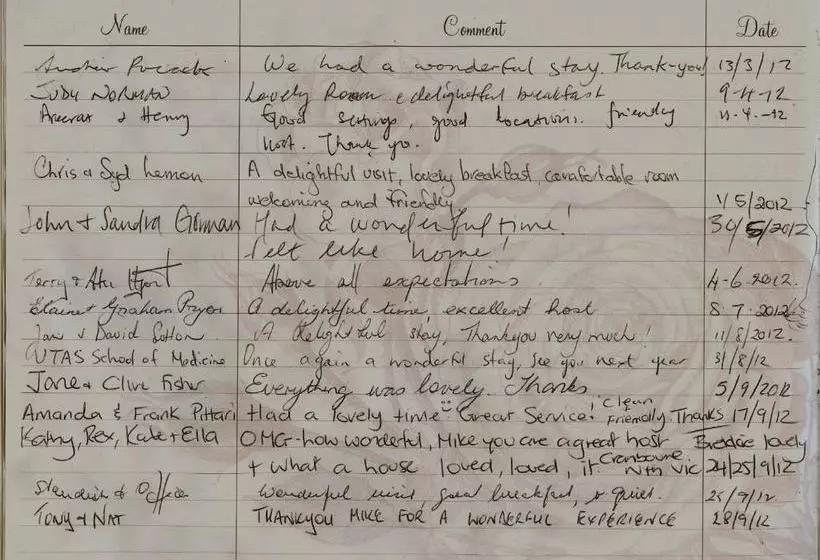 Name Comment Date
We had a wonderful stay. Thank-you! 13/3/12
JUDY NORMAN Lovely Room & delightful breakfast 9-4-12
& Henry Good settings, good locations. friendly 11-4-12
host. Thank you.
Chris & Syd Lemon A delightful visit, lovely breakfast, comfortable room
welcoming and friendly 1/5/2012
John + Sandra Gorman Had a wonderful time! 30/5/2012
Felt like home!
Terry & Above all expectations 4-6-2012.
Elaine & Graham Pryor A delightful time, excellent host 8.7.2012
Jan & David Sutton A delightful stay, Thankyou very much! 11/8/2012.
UTAS School of Medicine Once again a wonderful stay, see you next year 31/8/12
Jane & Clive Fisher Everything was lovely. Thanks 5/9/2012
Amanda & Frank Pittari Had a lovely time. Great Service! Clean! Friendly. Thanks 17/9/12
Kathy, Rex, Kate + Ella OMG-how wonderful, Mike you are a great host Breddie lovely
+ what a house loved, loved, it Cranbourne Nth Vic 24/25/9/12
Wonderful visit, great breakfast, & quiet. 25/9/12
TONY & NAT THANKYOU MIKE FOR A WONDERFUL EXPERIENCE 28/9/12